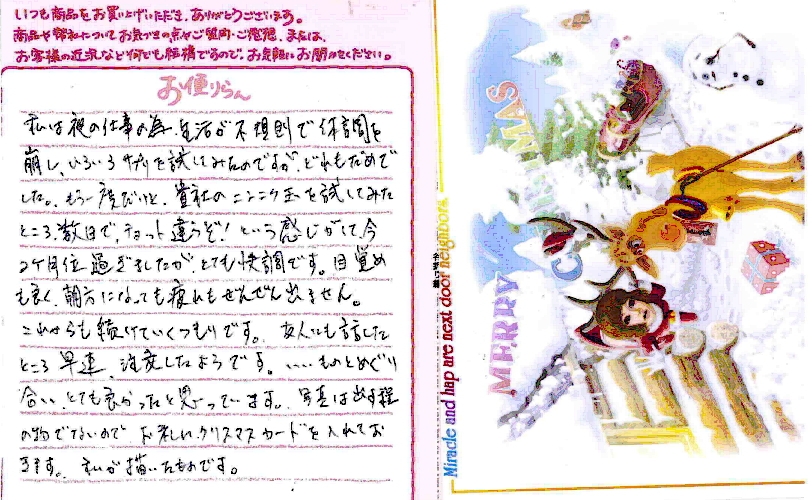 いつも商品をお買い上げいただき、ありがとうございます。
商品や弊社についてお気づきの点やご質問・ご感想、または、
お客様の近況など何でも結構ですので、お気軽にお聞かせください。
お便りらん
私は夜の仕事の為、生活が不規則で体調を
崩し、いろいろサプリを試してみたのですが、どれもだめで
した。もう一度だけと、貴社のニンニク玉を試してみた
ところ、数日で、チョット違うぞ!という感じがして、今
2ケ月位過ぎましたが、とても快調です。目覚め
も良く、朝方になっても疲れもぜんぜん出ません。
これからも続けていくつもりです。友人にも話した
ところ早速、注文したようです。‥‥ものとめぐり
合い、とても良かったと思っています。写真は出す程
の物でないので、お礼に、クリスマスカードを入れてお
きます。私が描いたものです。
MERRY CHRISTMAS
Miracle and hap are next door neighbors.